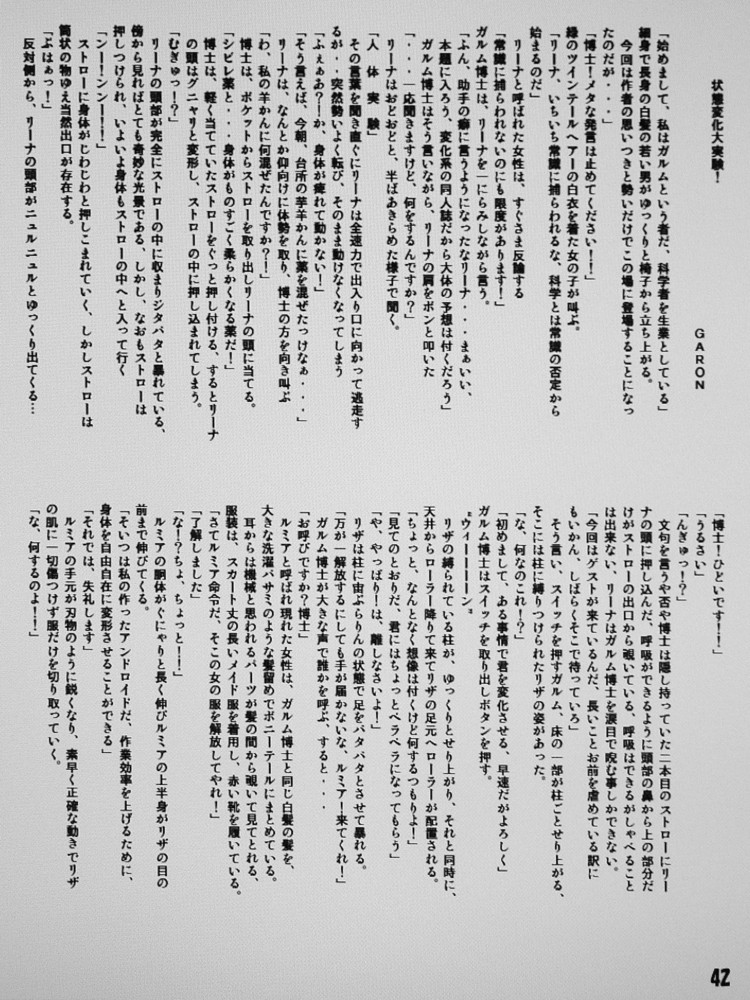 状態変化大実験！
GARON
「始めまして、私はガルムという者だ、科学者を生業としている」
細身で長身の白髪の若い男がゆっくりと椅子から立ち上がる。
今回は作者の思いつきと勢いだけでこの場に登場することになっ
たのだが・・・」
「博士！メタな発言は止めてください！！」
緑のツインテールヘアーの白衣を着た女の子が叫ぶ。
「リーナ、いちいち常識に捕らわれるな、科学とは常識の否定から
始まるのだ」
リーナと呼ばれた女性は、すぐさま反論する
「常識に捕らわれないのにも限度があります！」
ガルム博士は、リーナを一にらみしながら言う。
「ふん、助手の癖に言うようになったなリーナ・・・まぁいい、
本題に入ろう、変化系の同人誌だから大体の予想は付くだろう」
ガルム博士はそう言いながら、リーナの肩をポンと叩いた
「・・・一応聞きますけど、何をするんですか？」
リーナはおどおどと、半ばあきらめた様子で聞く。
「人 体 実 験」
その言葉を聞き直ぐにリーナは全速力で出入り口に向かって逃走す
るが・・突然勢いよく転び、そのまま動けなくなってしまう
「ふぇぁあ？！か、身体が痺れて動かない！」
「そう言えば、今朝、台所の芋羊かんに薬を混ぜたっけなぁ・・・」
リーナは、なんとか仰向けに体勢を取り、博士の方を向き叫ぶ
「わ、私の羊かんに何混ぜたんですか？！」
博士は、ポケットからストローを取り出しリーナの頭に当てる。
「シビレ薬と・・身体がものすごく柔らかくなる薬だ！」
博士は、軽く当てていたストローをぐっと押し付ける、するとリーナ
の頭はグニャリと変形し、ストローの中に押し込まれてしまう。
「むぎゅっ！？」
リーナの頭部が完全にストローの中に収まりジタバタと暴れている、
傍から見ればとても奇妙な光景である、しかし、なおもストローは
押しつけられ、いよいよ身体もストローの中へと入って行く
「ンー！ンンー！！」
ストローに身体がじわじわと押しこまれていく、しかしストローは
筒状の物ゆえ当然出口が存在する。
「ぷはぁっ！」
反対側から、リーナの頭部がニュルニュルとゆっくり出てくる…
「博士！ひどいです！！」
「うるさい」
「んぎゅっ！？」
文句を言うや否や博士は隠し持っていた二本目のストローにリー
ナの頭に押し込んだ、呼吸ができるように頭部の鼻から上の部分だ
けがストローの出口から覗いている、呼吸はできるがしゃべること
は出来ない、リーナはガルム博士を涙目で睨む事しかできない。
「今回はゲストが来ているんだ、長いことお前を虐めている訳に
もいかん、しばらくそこで待っていろ」
そう言い、スイッチを押すガルム、床の一部が柱ごとせり上がる、
そこには柱に縛りつけられたリザの姿があった。
「な、何なのこれ！？」
「初めまして、ある事情で君を変化させる、早速だがよろしく」
ガルム博士はスイッチを取り出しボタンを押す。
〝ウィーーーーン〟
リザの縛られている柱が、ゆっくりとせり上がり、それと同時に、
天井からローラー降りて来てリザの足元へローラーが配置される。
「ちょっと、なんとなく想像は付くけど何するつもりよ！」
「見てのとおりだ、君にはちょっとペラペラになってもらう」
「や、やっぱり！は、離しなさいよ！」
リザは柱に宙ぶらりんの状態で足をバタバタとさせて暴れる。
「万が一解放するにしても手が届かないな、ルミア！来てくれ！」
ガルム博士が大きな声で誰かを呼ぶ、すると・・・
「お呼びですか？博士」
ルミアと呼ばれ現れた女性は、ガルム博士と同じ白髪の髪を、
大きな洗濯バサミのような髪留めでポニーテールにまとめている。
耳からは機械と思われるパーツが髪の間から覗いて見てとれる、
服装は、スカート丈の長いメイド服を着用し、赤い靴を履いている。
「さてルミア命令だ、そこの女の服を解放してやれ！」
「了解しました」
「な！？ちょ、ちょっと！！」
ルミアの胴体がぐにゃりと長く伸びルミアの上半身がリザの目の
前まで伸びてくる。
「そいつは私の作ったアンドロイドだ、作業効率を上げるために、
身体を自由自在に変形させることができる」
「それでは、失礼します」
ルミアの手元が刃物のように鋭くなり、素早く正確な動きでリザ
の肌に一切傷つけず服だけを切り取っていく。
「な、何するのよ！！」
42